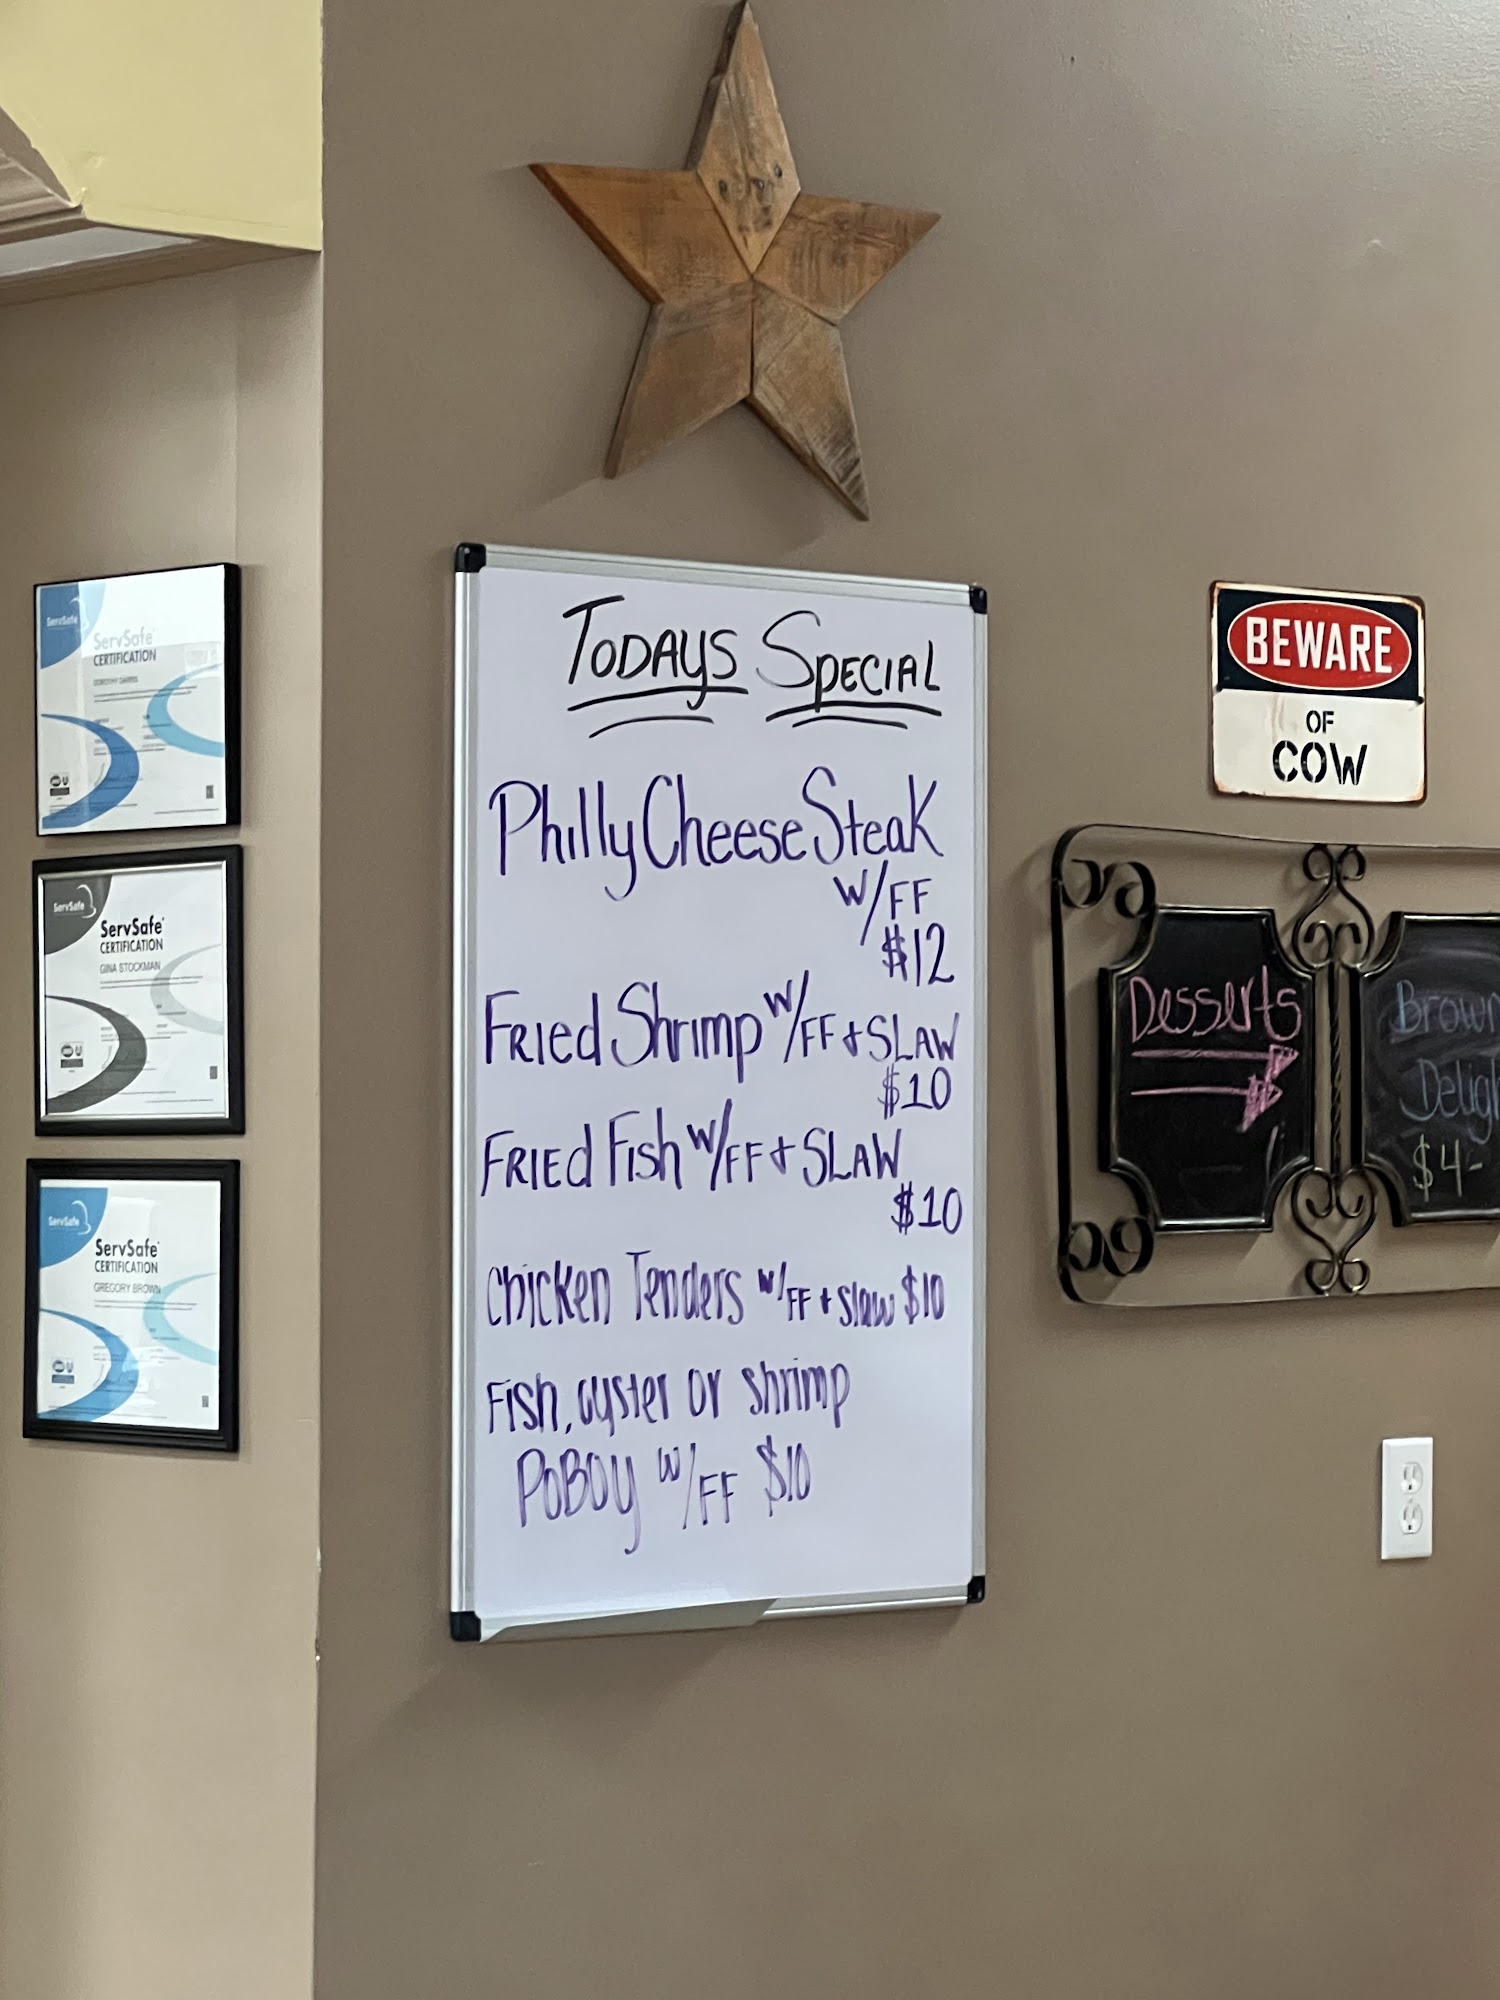 TODAYS SPECIAL
Philly Cheese Steak
W/FF
$12
FRIED Shrimp W/FF + SLAW
$10
FRIED Fish W/FF + SLAW
$10
Chicken Tenders W/FF + Slaw $10
Fish, oyster or shrimp
POBOY W/FF $10
ServSafe
ServSafe
CERTIFICATION
ServSafe
ServSafe
CERTIFICATION
GINA STOCKMAN
ServSafe
ServSafe
CERTIFICATION
GREGORY BROWN
BEWARE
OF
COW
Desserts
Brown
Delig
$4-